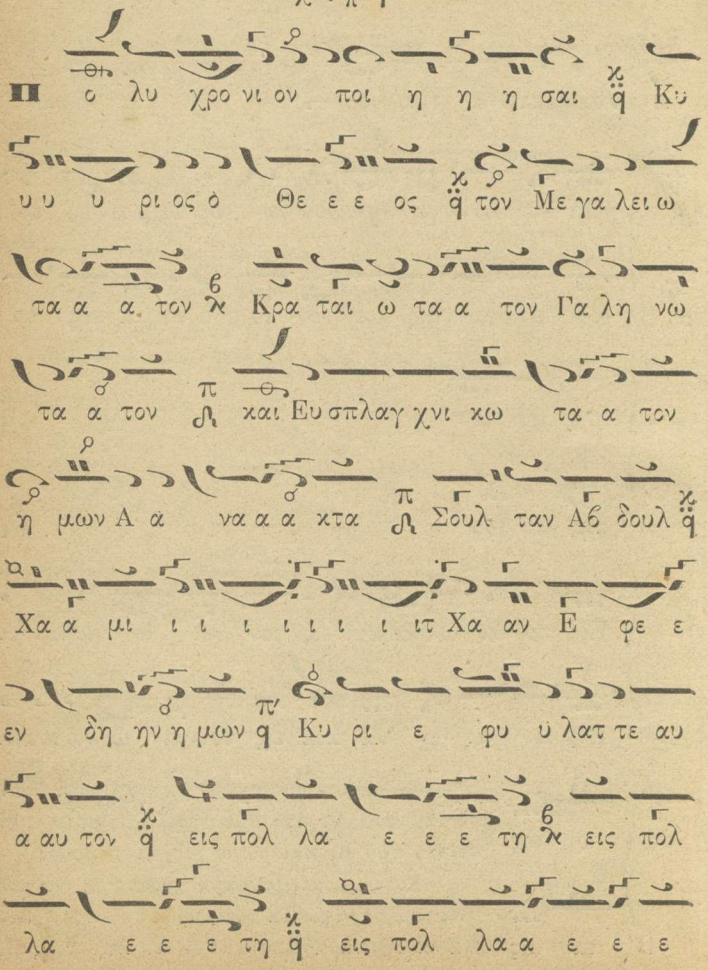 Π ο λυ χρο νι ον ποι η η η σαι Κυ
υ υ υ ρι ος ὁ Θε ε ε ος τον Με γα λει ω
τα α α τον Κρα ται ω τα α τον Γα λη νω
τα α τον και Ευ σπλαγ χνι κω τα α τον
η μων Α α να α α κτα Σουλ ταν Αβ δουλ
Χα α μι ι ι ι ι ι ι ι ιτ Χα αν Ε φε ε
εν δη ην η μων Κυ ρι ε φυ υ λατ τε αυ
α αυ τον εις πολ λα ε ε ε τη εις πολ
λα ε ε ε τη εις πολ λα α ε ε ε